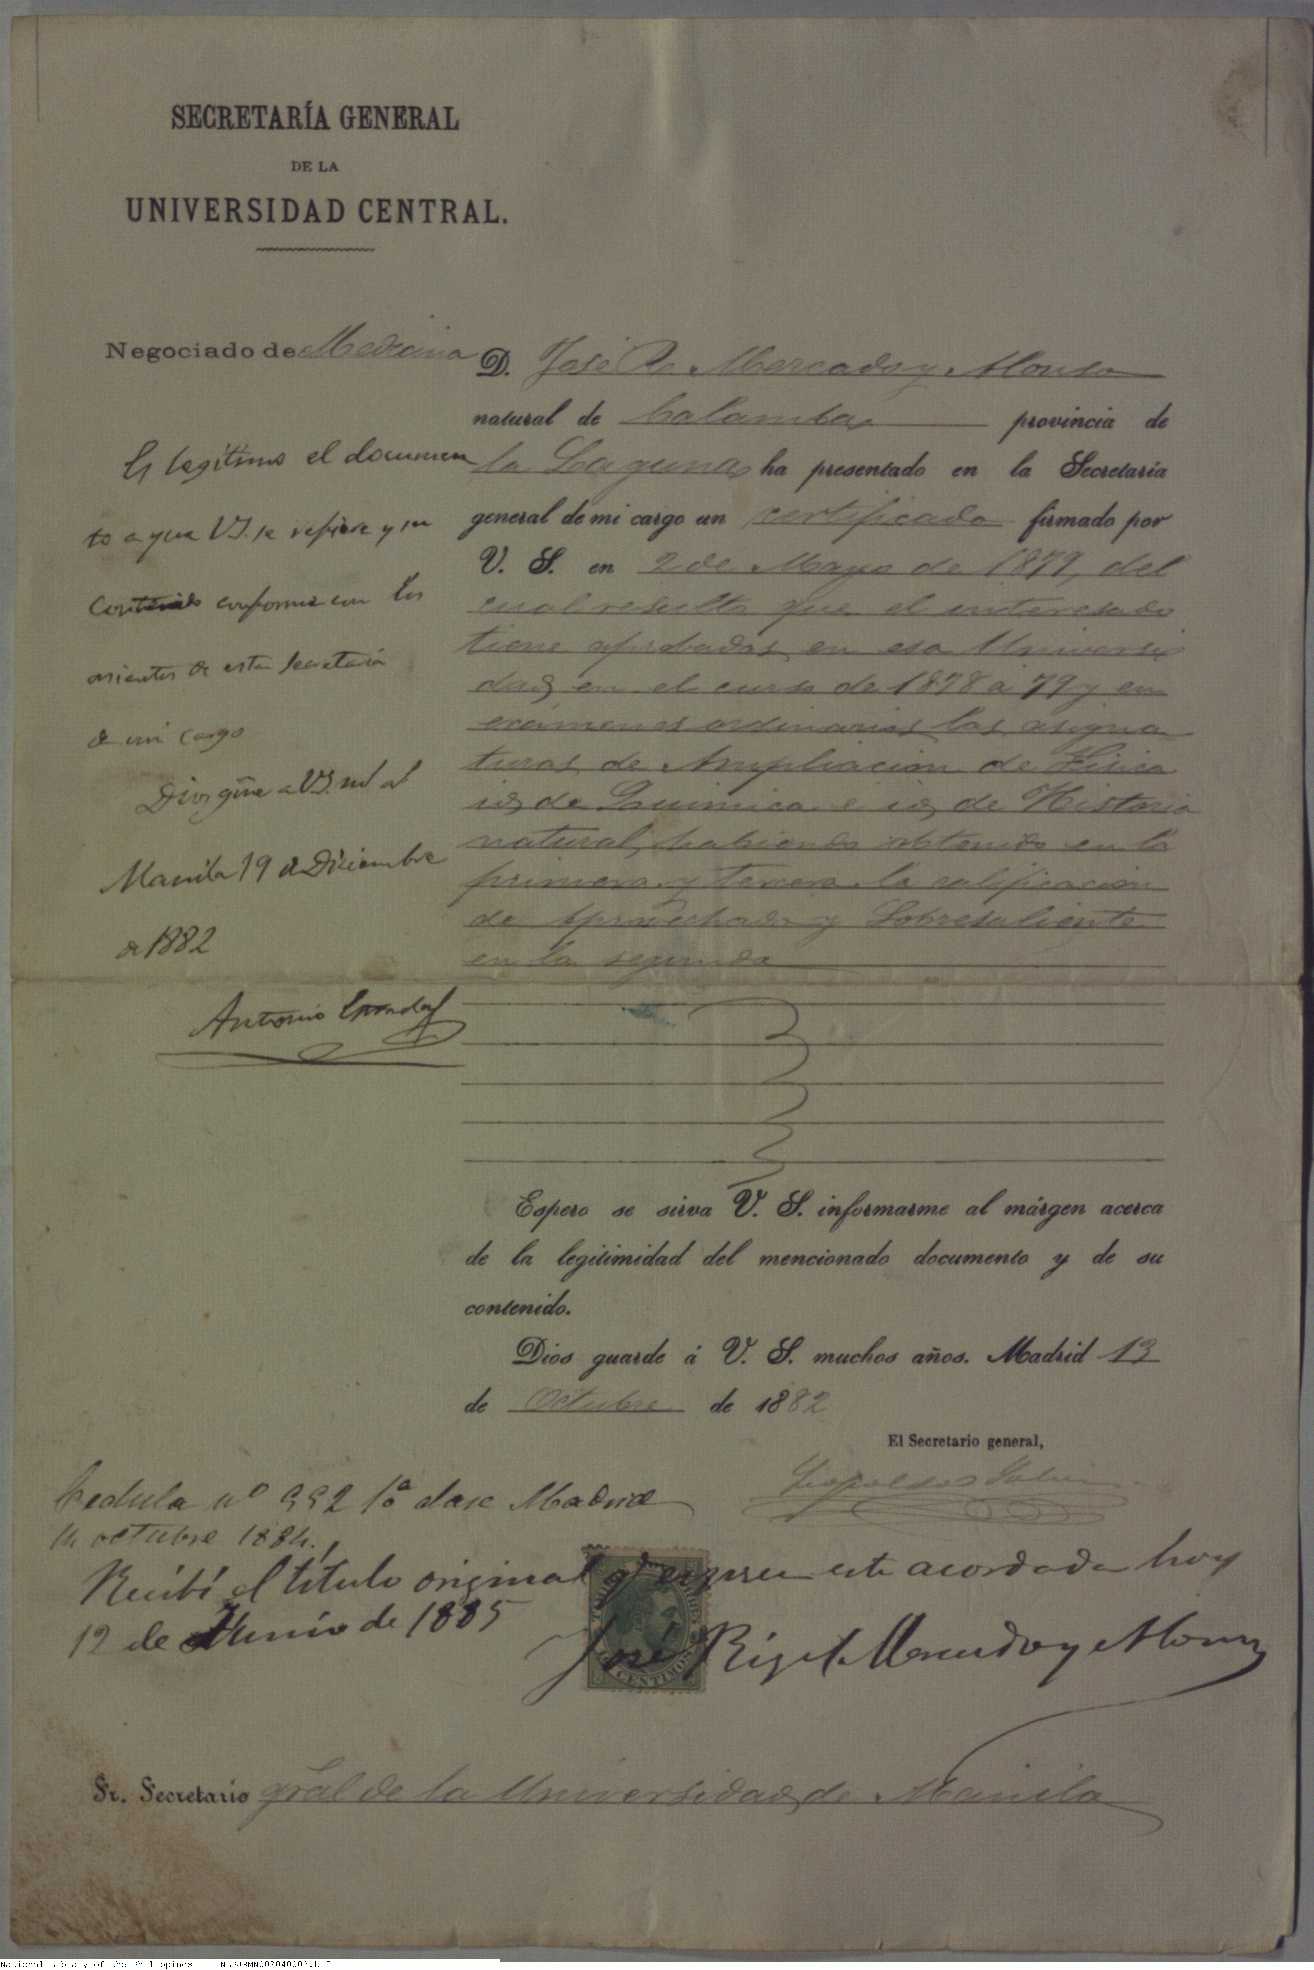 SECRETARÍA GENERAL
DE LA
UNIVERSIDAD CENTRAL.
Negociado de Medicina
D. José R. Mercado y Alonso
natural de Calamba provincia de
la Laguna ha presentado en la Secretaría
general de mi cargo un certificado firmado por
V. S. en 2 de Mayo de 1879, del
cual resulta que el interesado
tiene aprobadas en esa Universi
dad en el curso de 1878 a 79 y en
exámenes ordinarios las asigna
turas de Ampliacion de Física
id de Quimica e id de Historia
natural, habiendo obtenido en la
primera y tercera la calificacion
de Aprovechado y Sobresaliente
en la segunda
Es legítimo el documen
to a que V.S. se refiere y su
contenido conforme con los
asientos de esta Secretaría
de mi cargo
Dios gũe a V.S. m.s a.s
Manila 19 de Diciembre
de 1882
Antonio
Espero se sirva V. S. informarme al márgen acerca
de la legitimidad del mencionado documento y de su
contenido.
Dios guarde á V. S. muchos años. Madrid 13
de Octubre de 1882
El Secretario general,
Cedula nº 992 1ª clase Madrid
14 octubre 1884.
Recibí el título original y expresa esta acordada hoy
12 de Junio de 1885
José Rizal Mercado y Alonso
CENTIMOS
Sr. Secretario gral de la Universidad de Manila
National Library of the Philippines